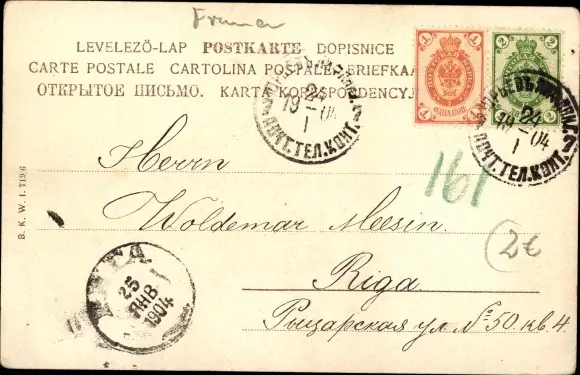 LEVELEZÖ-LAP POSTKARTE DOPISNICE
CARTE POSTALE CARTOLINA POSTALE BRIEFKAA
ОТКРЫТОЕ ПИСЬМО. KARTA KORESPONDENCYJ
1 1
2 2
24
19–04
I
ПОЧТ.ТЕЛ.КОНТ.
24
04
I
ПОЧТ.ТЕЛ.КОНТ.
Herrn
161
Woldemar Meesin.
2€
B. K. W. I. 719-6
Riga
25
ЯНВ
1904
Рыцарская ул. № 50 кв. 4.